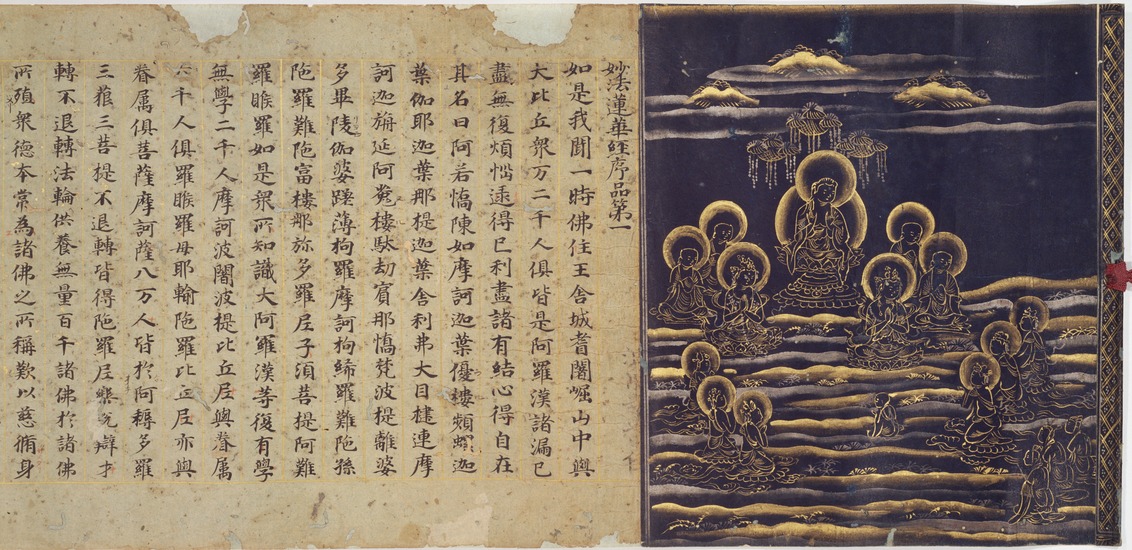 妙法蓮華經序品第一
如是我聞一時佛住王舍城耆闍崛山中與
大比丘眾万二千人俱皆是阿羅漢諸漏已
盡無復煩惱逮得已利盡諸有結心得自在
其名曰阿若憍陳如摩訶迦葉優樓頻螺迦
葉伽耶迦葉那提迦葉舍利弗大目揵連摩
訶迦旃延阿㝹樓馱劫賓那憍梵波提離婆
多畢陵伽婆蹉薄拘羅摩訶拘絺羅難陁孫
陁羅難陁富樓那弥多羅尼子須菩提阿難
羅睺羅如是眾所知識大阿羅漢等復有學
無學二千人摩訶波闍波提比丘尼與眷属
六千人俱羅睺羅母耶輸陁羅比丘尼亦與
眷属俱菩薩摩訶薩八万人皆於阿耨多羅
三藐三菩提不退轉皆得陁羅尼樂說辯才
轉不退轉法輪供養無量百千諸佛於諸佛
所殖眾德本常為諸佛之所稱歎以慈脩身